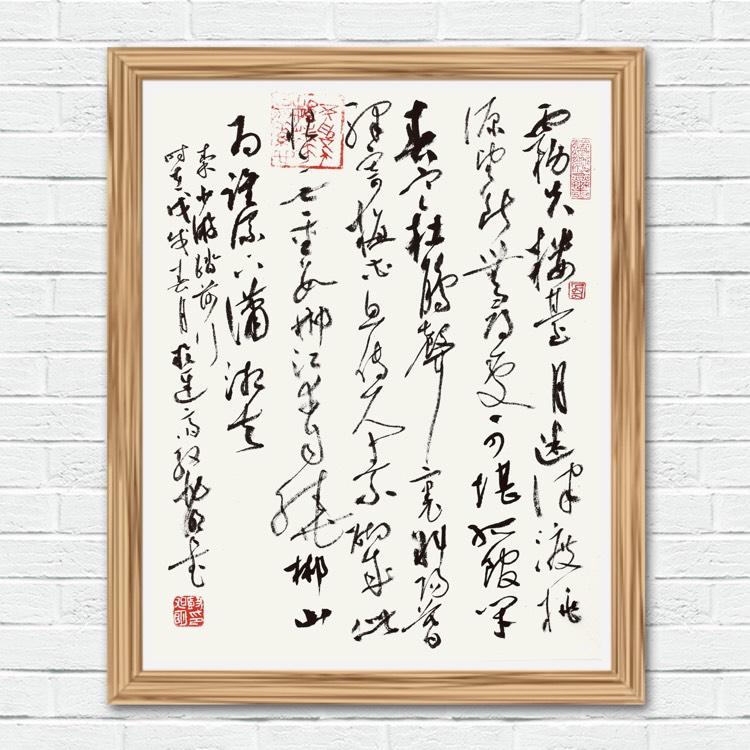 霧失樓臺月迷津渡桃
源望斷無尋處可堪孤館閉
春寒杜鵑聲裏斜陽暮
驛寄梅花魚傳尺素砌成此
恨無重數郴江幸自繞郴山
為誰流下瀟湘去
秦少游踏莎行
時在戊戌春月於蓮